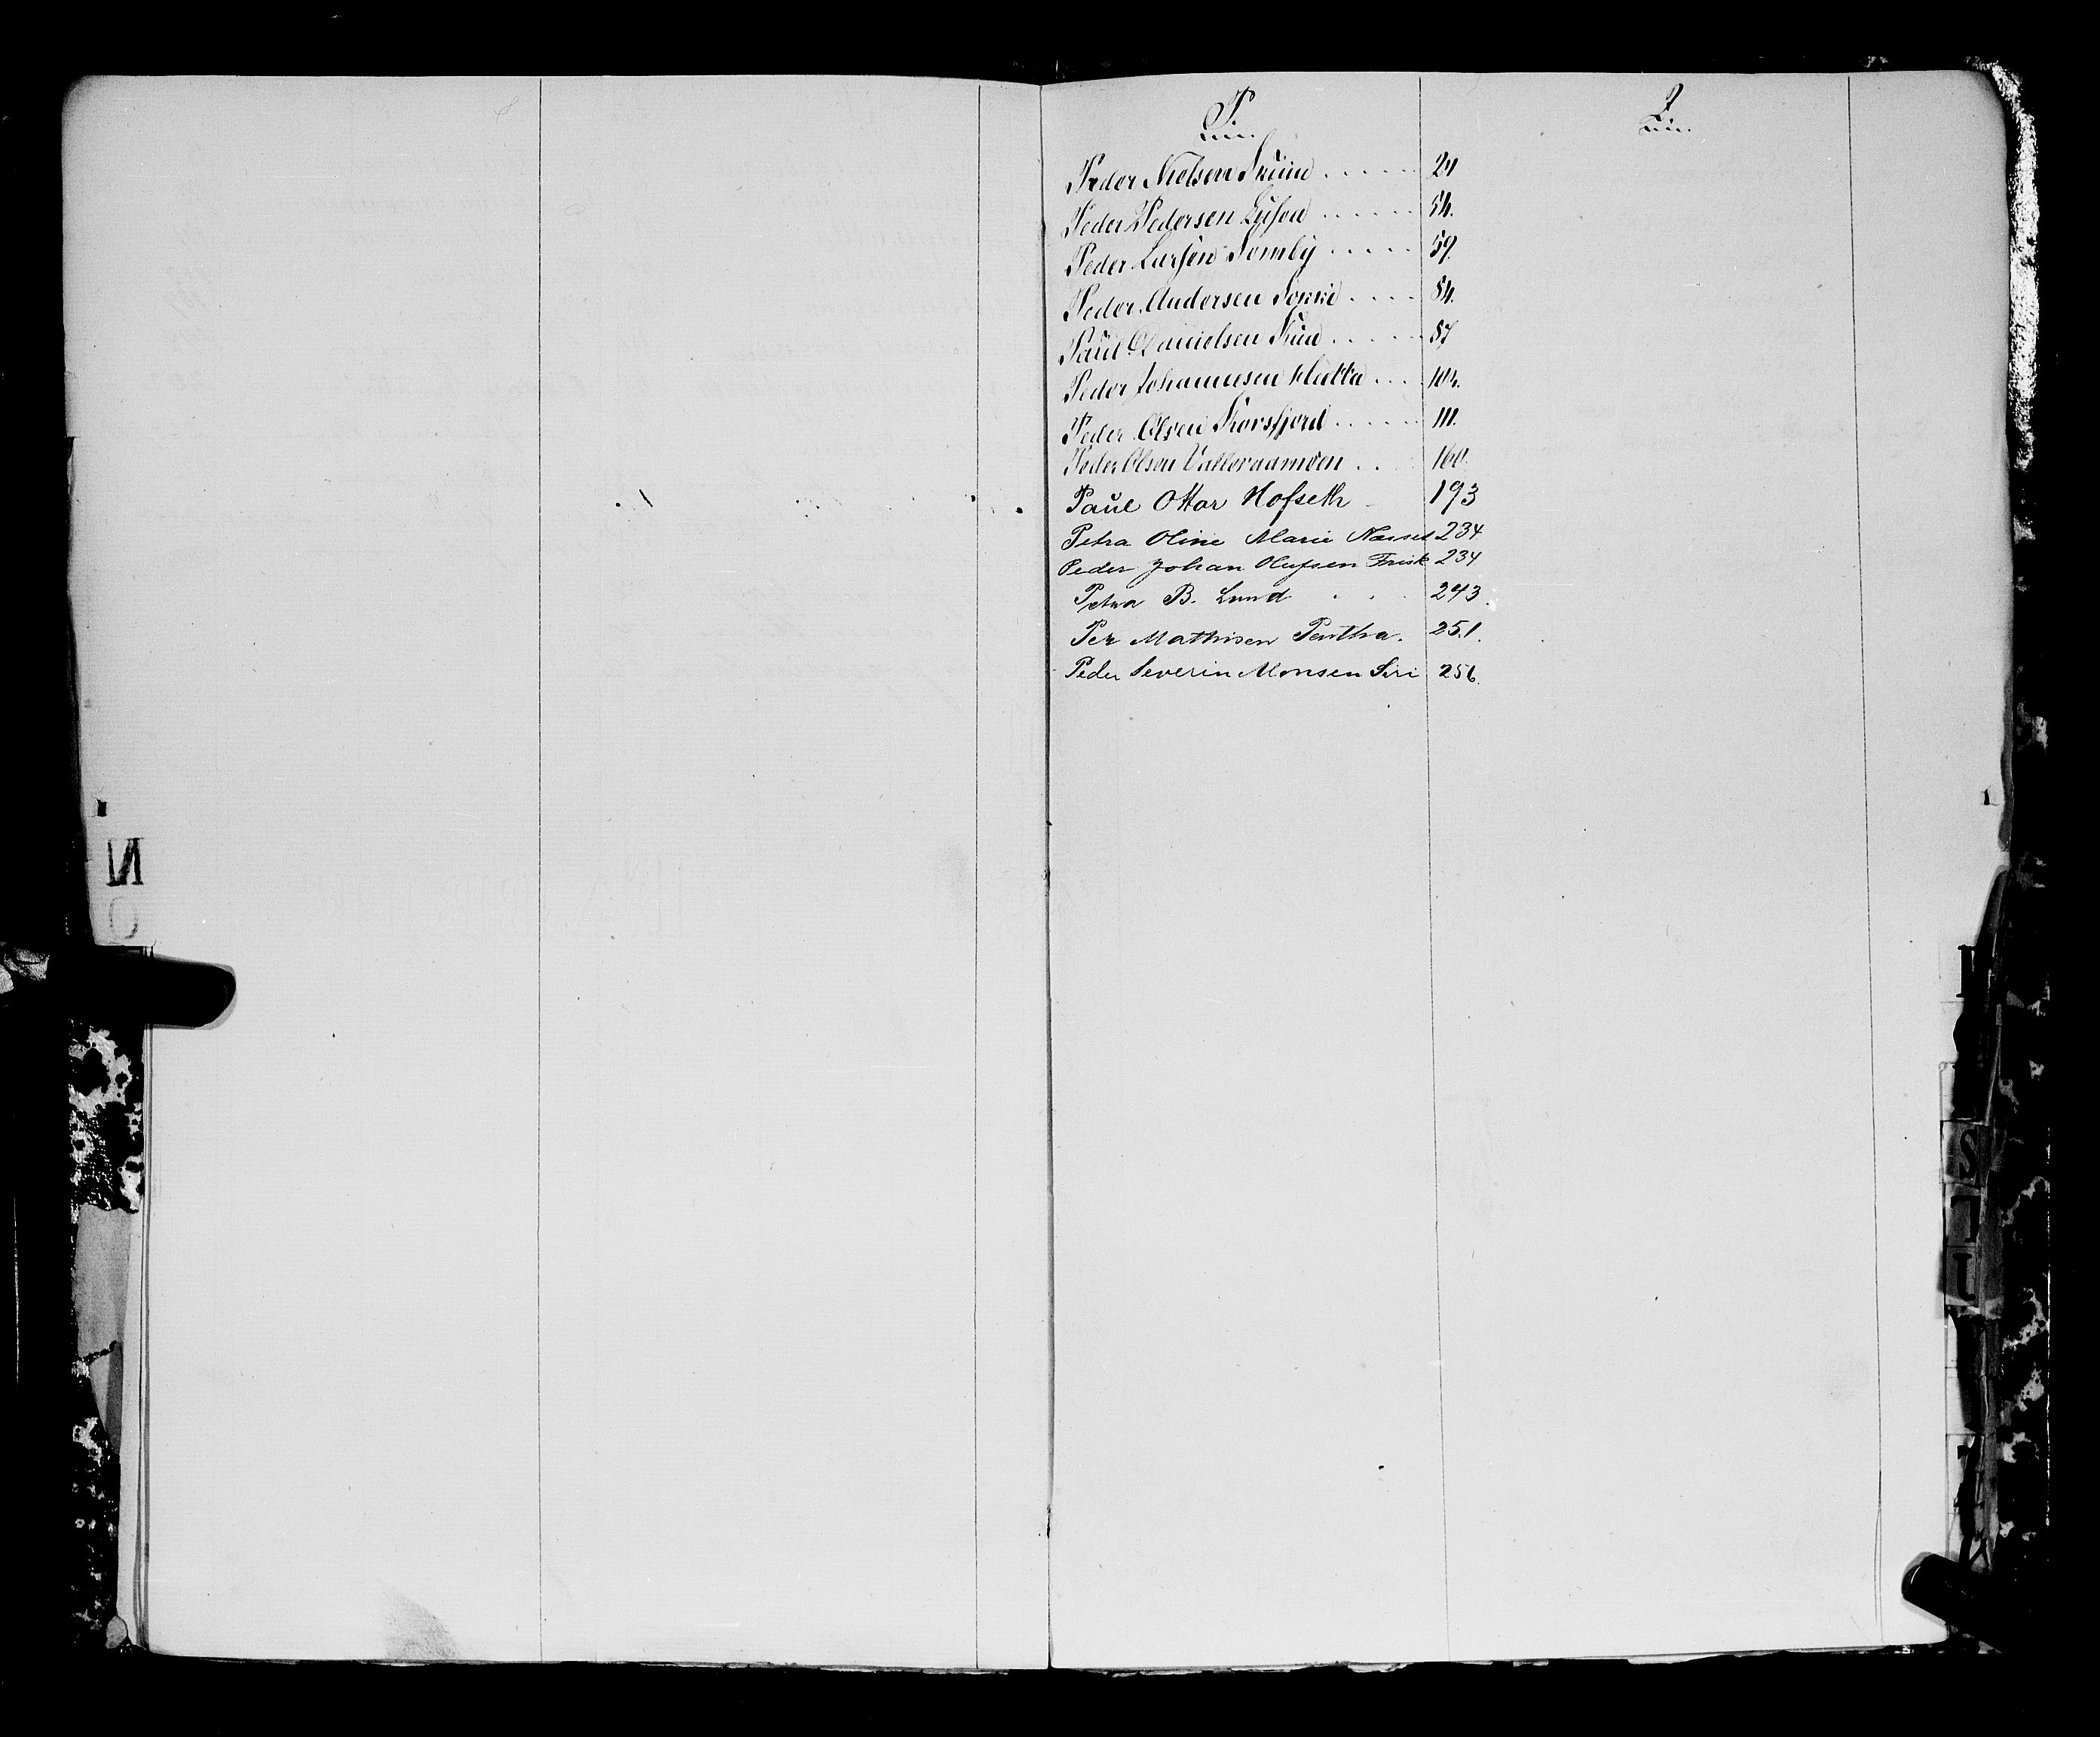 P.
Q
Peder Nielsen 24
Peder Pedersen 54.
Peder Larsen Somby 59.
Peder Andersen 84.
Paul Danielsen 87
Peder Johannesen Hætta 104.
Peder Olsen Korsfjord 111.
Peder Olsen 160.
Paul Ottar Hofseth 193
Petra Oline Marie Næsset 234
Peder Johan Olufsen Frisk 234
Petra B. Lund 243.
Per Mathisen Pentha. 251.
Peder Severin Monsen Siri 256.
N
O
S
T